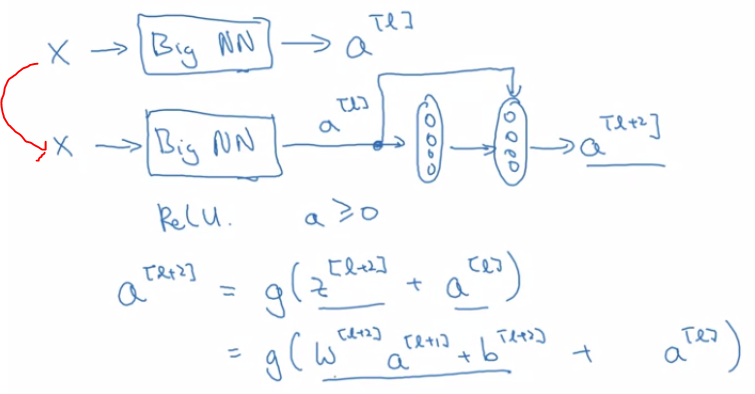 X → Big NN → a^[l]
X → Big NN a^[l] → → → a^[l+2]
ReLU. a ≥ 0
a^[l+2] = g(z^[l+2] + a^[l])
= g(W^[l+2] a^[l+1] + b^[l+2] + a^[l])